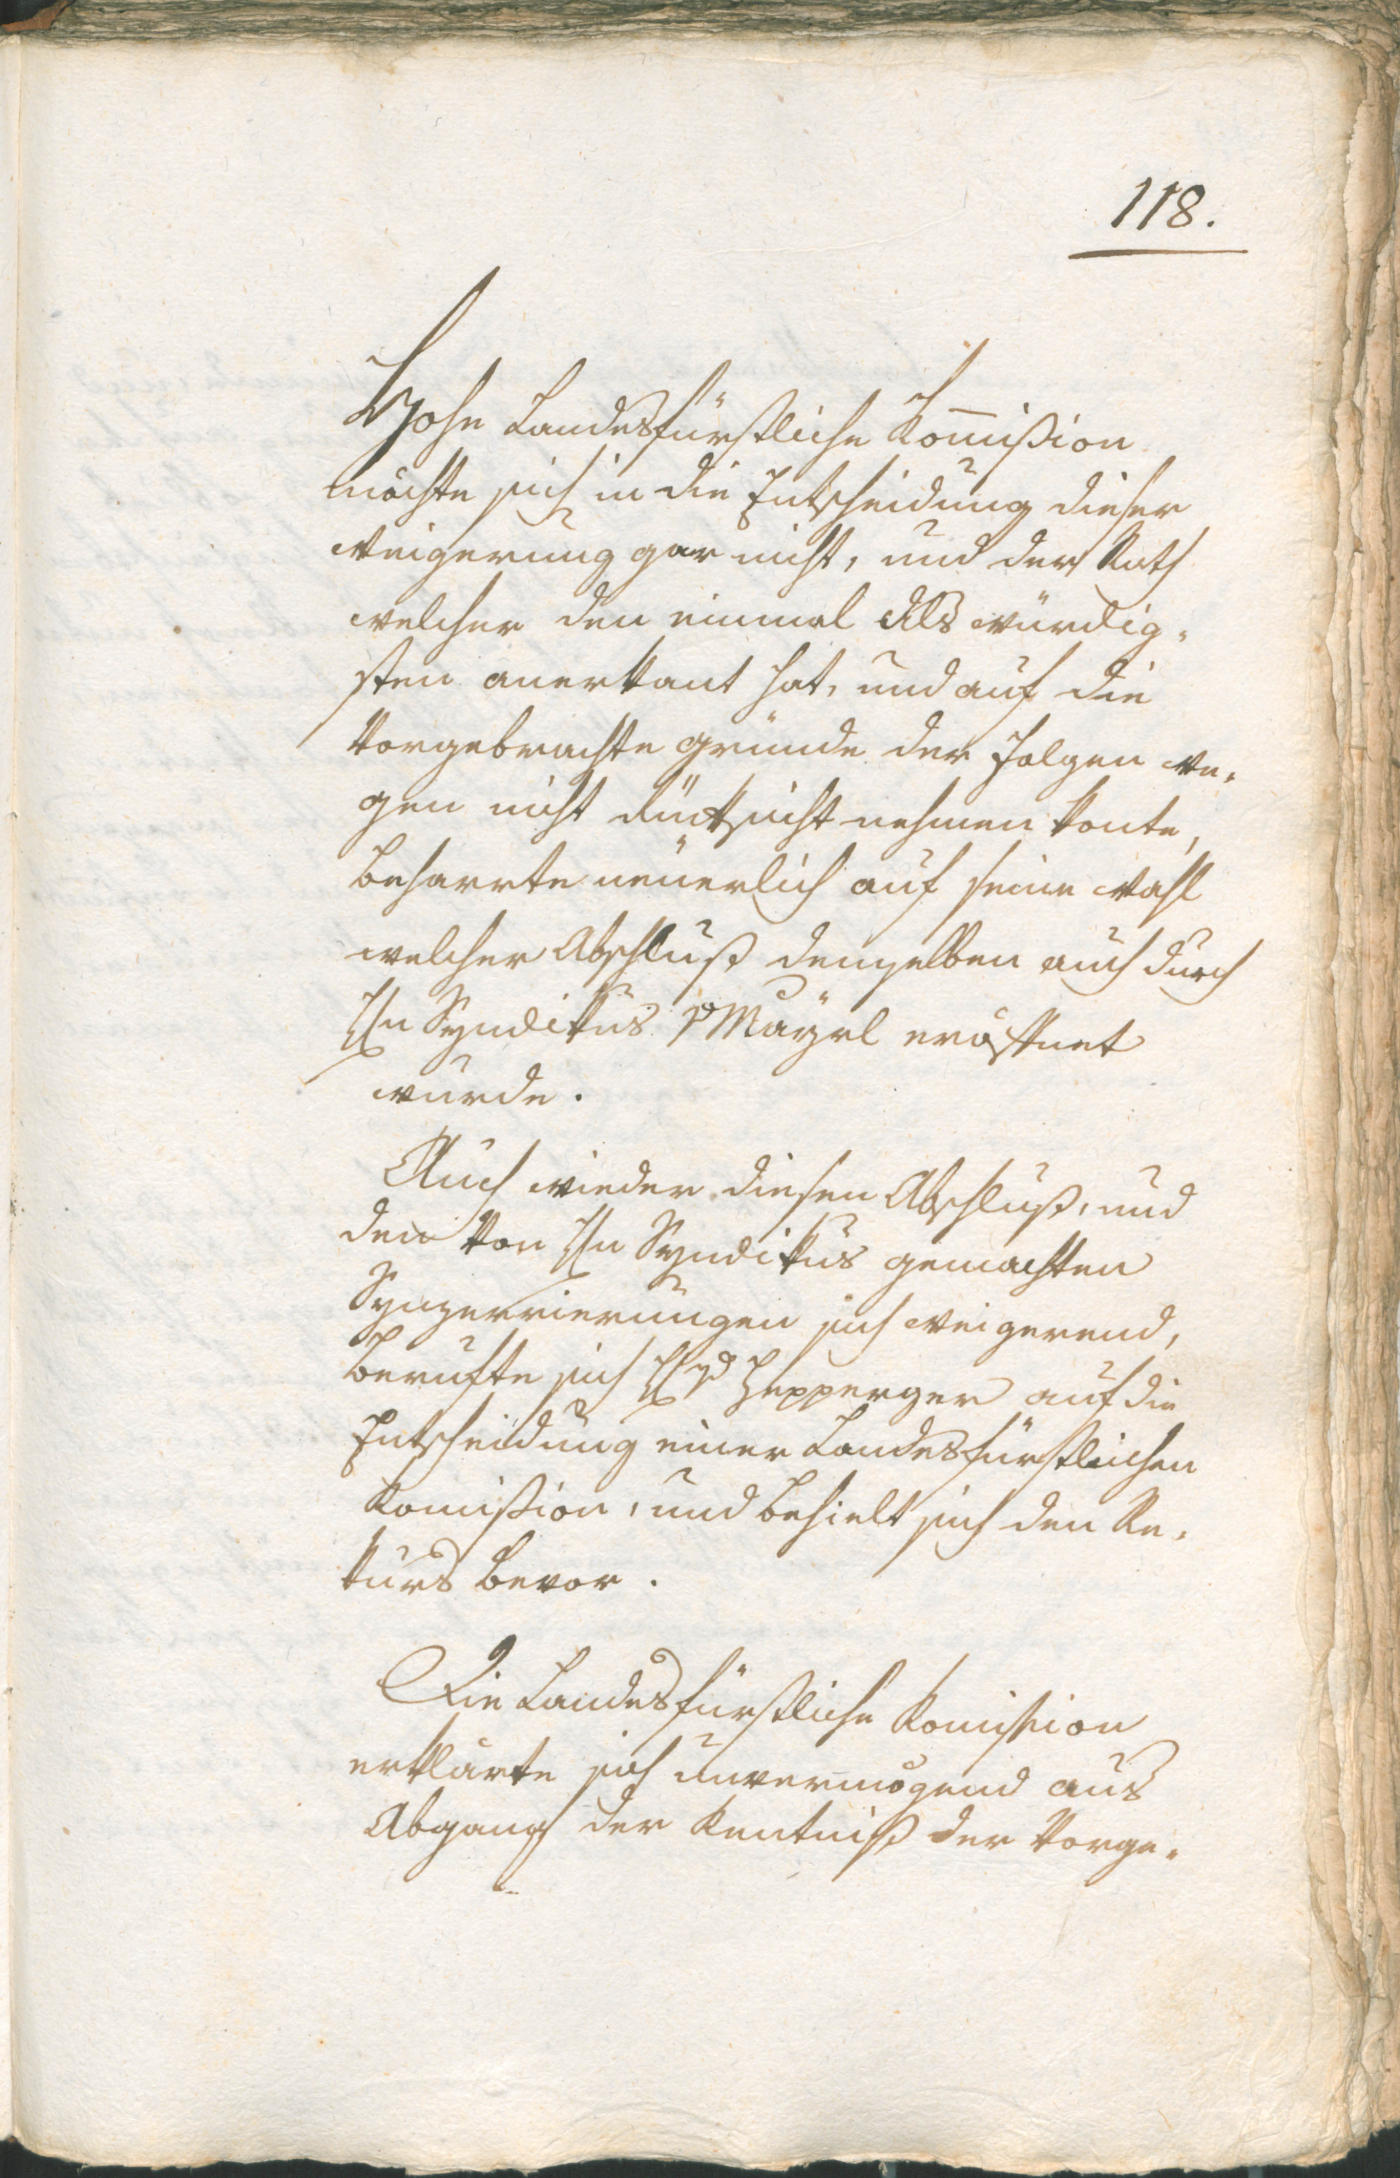 118.
Hohe Landesfürstliche Kom̄ißion
möchte sich in die Entscheidung dieser
weigerung gar nicht, und der Rath
welcher den einmal als würdig-
sten anerkant hat, und auf die
Vorgebrachte gründe der folgen we-
gen nicht Rücksicht nehmen konte,
beharrte neüerlich auf seine wahl
welcher Abschluß demselben auch durch
Hn Syndikus v Mayrl eröffnet
wurde.
Auch wieder diesen Abschluß, und
den von Hn Syndikus gemachten
beruften sich H v Zepperger auf die
Entscheidung einer Landesfürstlichen
Komißion, und behielt sich den Re-
kurs bevor.
Die Landesfürstliche Komißion
erklärte sich unvermögend aus
Abgang der Kentniß der Vorge-